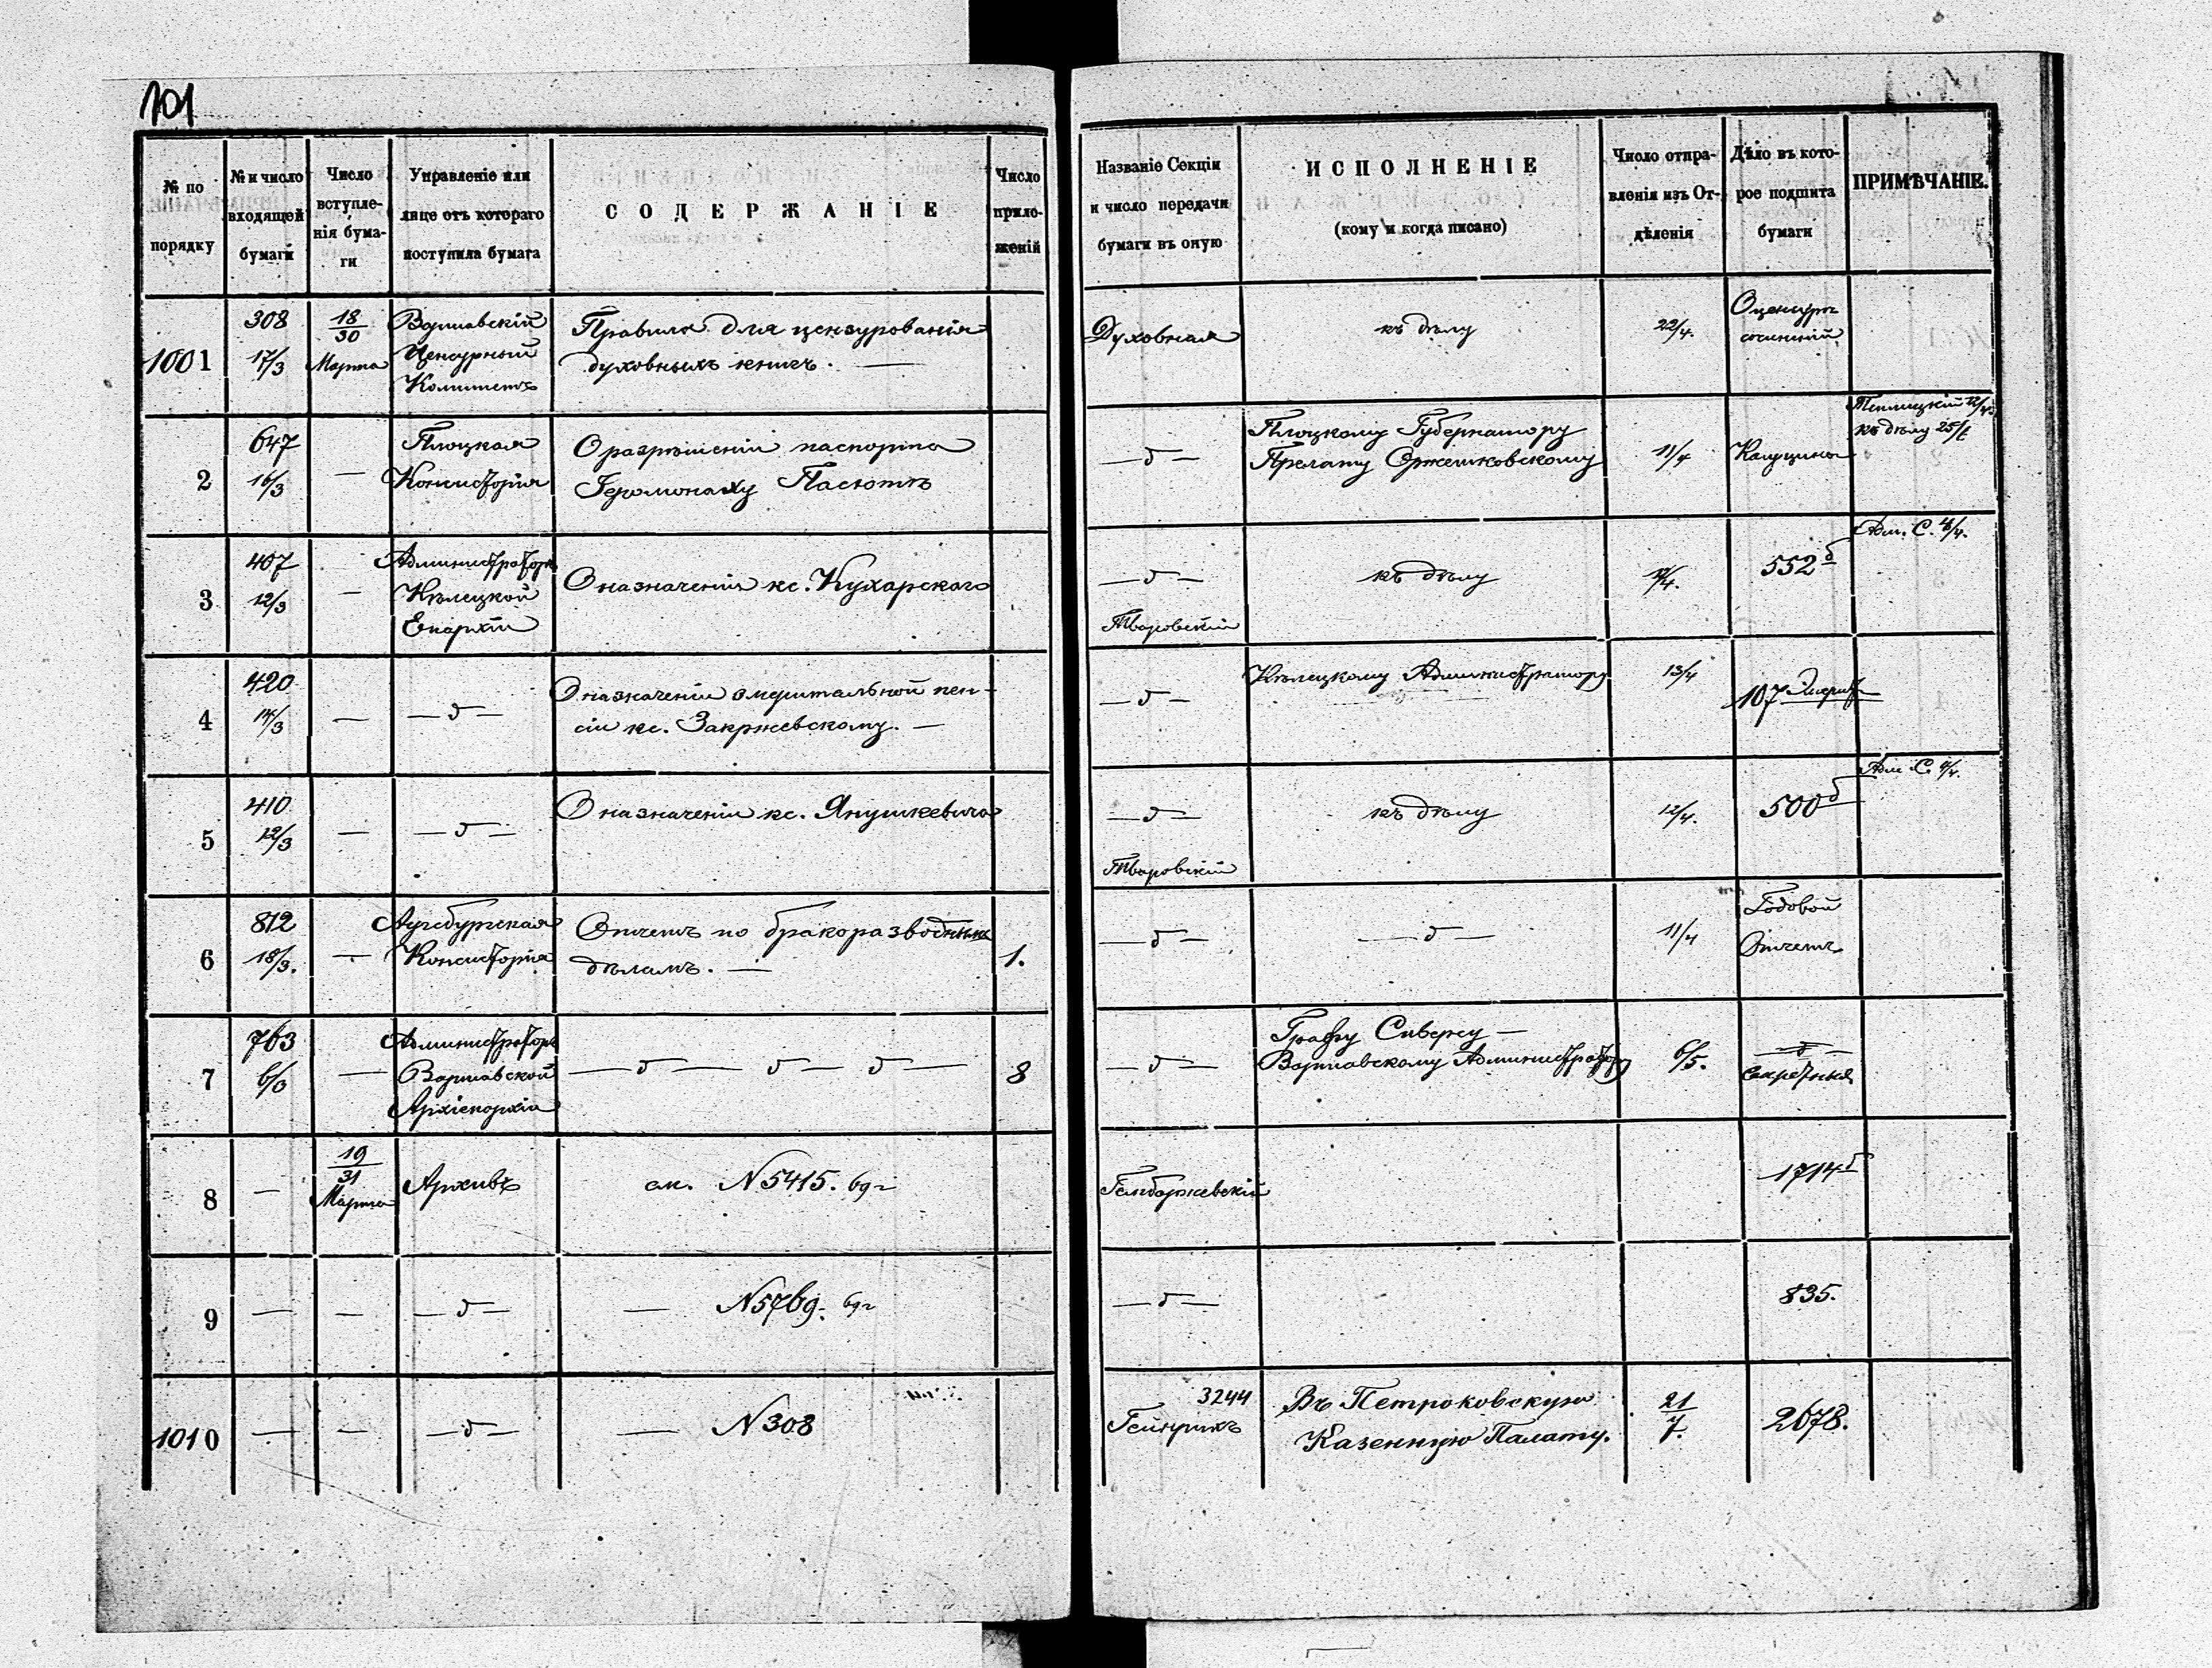 101
№ по порядку
№ и число входящей бумаги
Число вступле-нія бума-ги
Управленіе или лице отъ котораго поступила бумага
СОДЕРЖАНІЕ
Число прило-женій
Названіе Секціи и число передачи бумаги въ оную
ИСПОЛНЕНІЕ
(кому и когда писано)
Число отпра-вленія изъ От-дѣленія
Дѣло въ кото-рое подшита бумаги
ПРИМѢЧАНІЕ.
1001
308
17/3
18/30
Марта
Варшавскій
Цензурный
Комитетъ
Правила для цензурованія
духовныхъ книгъ. —
Духовная
къ дѣлу
22/4.
О цензурѣ
сочиненій
2
647
16/3
—
Плоцкая
Консисторія
О разрѣшеніи паспорта
Іеромонаху
— д —
Плоцкому Губернатору
Прелату Оржешковскому
11/4
Капуцины
къ дѣлу
3
407
12/3
—
Администраторъ
Кѣлецкой
Епархіи
О назначеніи кс. Кухарскаго
— д —
Тваровскій
къ дѣлу
552 д
Адм. С.
4
420
14/3
—
— д —
О назначеніи эмеритальной пен-
сіи кс. Закржевскому. —
— д —
Кѣлецкому Администратору
13/4
107
5
410
12/3
—
— д —
О назначеніи кс. Янушкевича
— д —
Тваровскій
къ дѣлу
12/4.
500 д
Адм. С.
6
812
18/3.
—
Аугсбургская
Консисторія
Отчетъ по бракоразводнымъ
дѣламъ. —
1.
— д —
— д —
11/4
Годовой
Отчетъ
7
763
—
Администраторъ
Варшавской
Архіепархіи
— д — д — д —
8
— д —
Графу Сиверсу —
Варшавскому Администратору
6/5.
— д —
8
—
19/31
Марта
Архивъ
см. N 5415. 69 г
1714 д
9
—
—
— д —
— N 5769. 69 г
— д —
835.
1010
—
—
— д —
— N 308
3244
Гейнрихъ
Въ Петроковскую
Казенную Палату.
21/7.
2678.